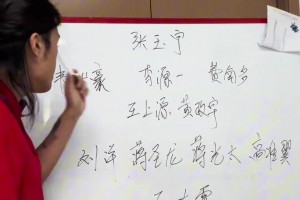 张玉宇
豪 肖源一 黄尚多
王上源 黄政宇
刘洋 蒋圣龙 蒋光太 高准翼